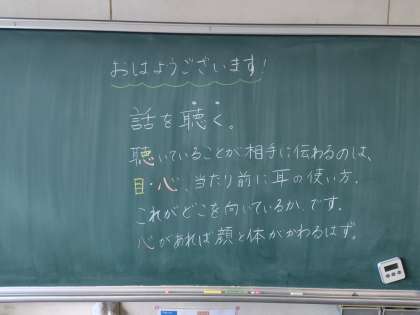 おはようございます!
話を聴く。
聴いていることが相手に伝わるのは、
目・心、当たり前に耳の使い方。
これがどこを向いているか、です。
心があれば顔と体がかわるはず。